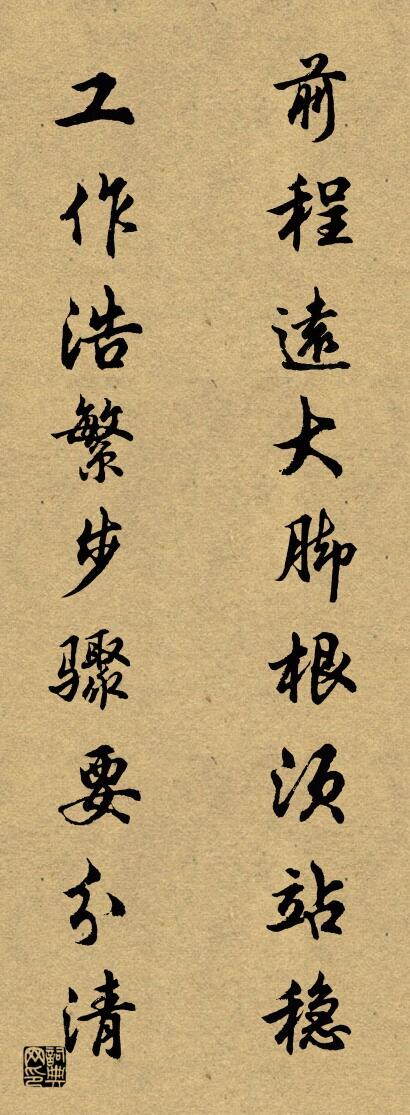 前程遠大脚根须站稳
工作浩繁步骤要分清
詞典网印